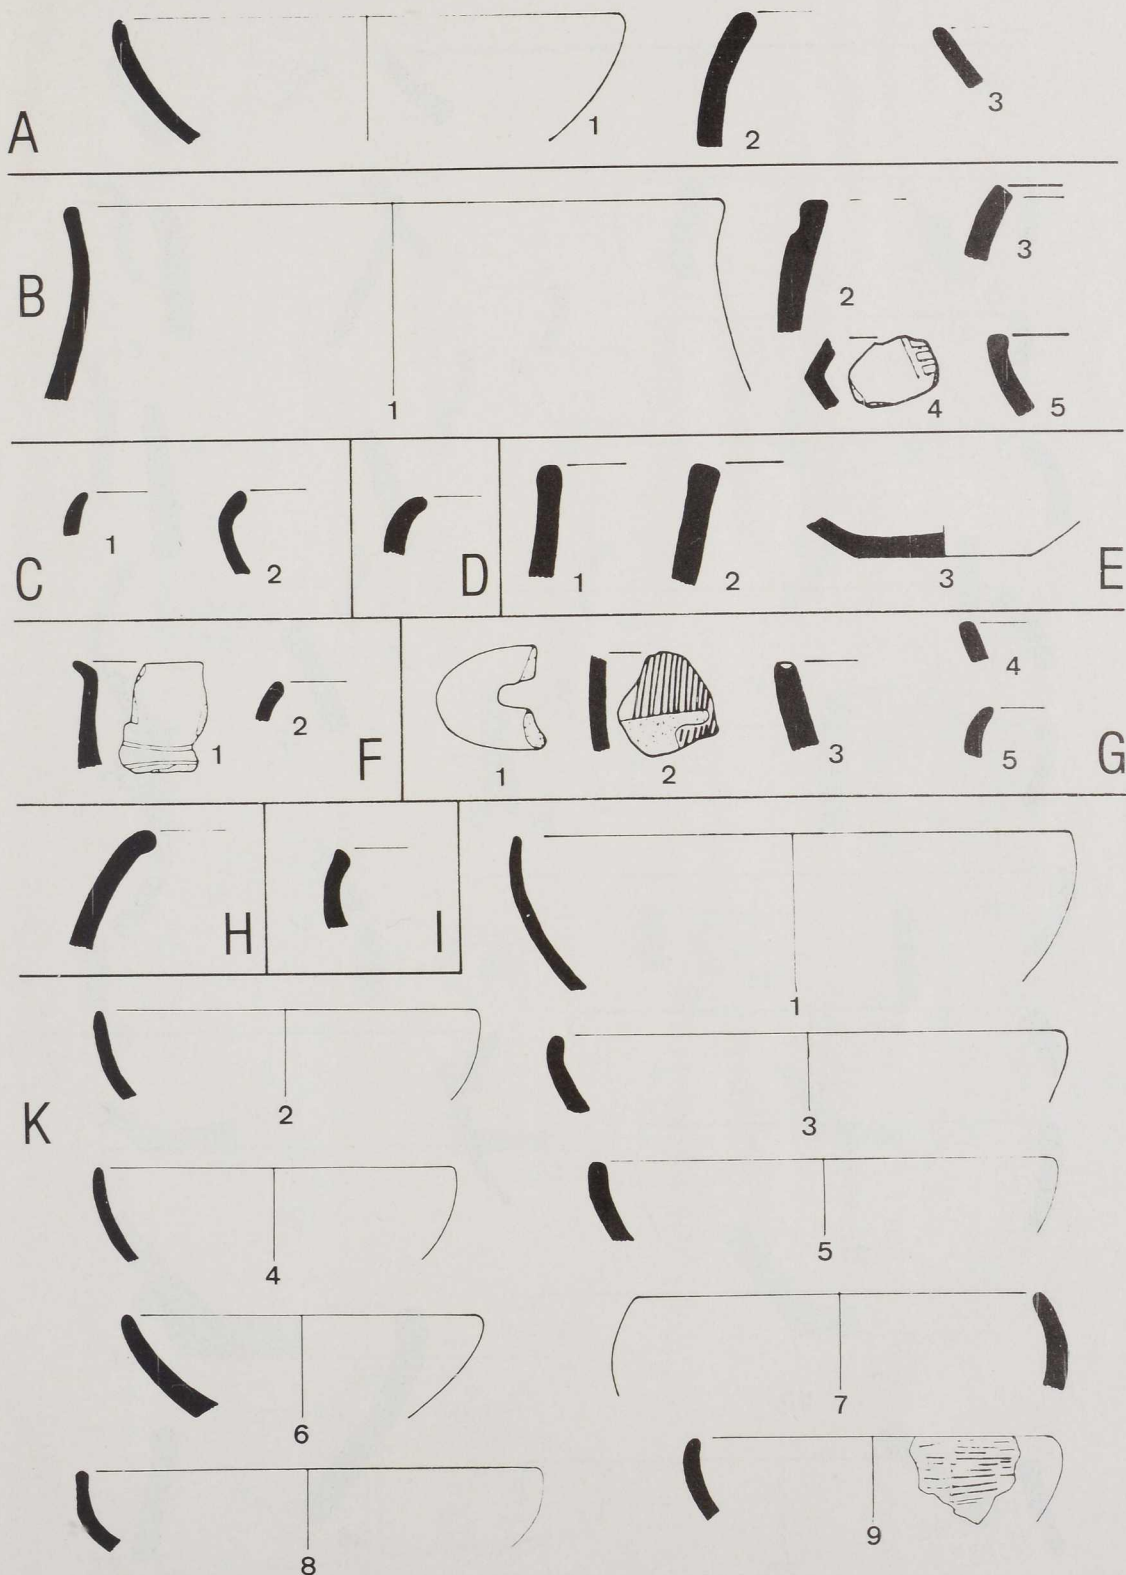 A
1
2
3
B
1
2
3
4
5
C
1
2
D
E
1
2
3
F
1
2
G
1
2
3
4
5
H
I
K
1
2
3
4
5
6
7
8
9